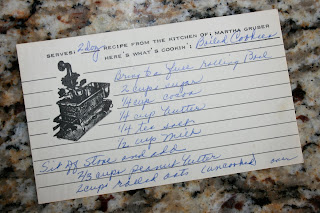 SERVES: 2 doz RECIPE FROM THE KITCHEN OF: MARTHA GRUBER
HERE'S WHAT'S COOKIN': Boiled Cookies
Bring to a full rolling Boil
2 cups sugar
1/4 cup cocoa
1/4 cup butter
1/4 tea salt
1/2 cup milk
Set off stove and add
2/3 cups peanut butter
2 cups rolled oats (uncooked)